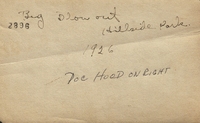 Big Blow out
2936
Hillside Park
1926
Joe Hurd on Right